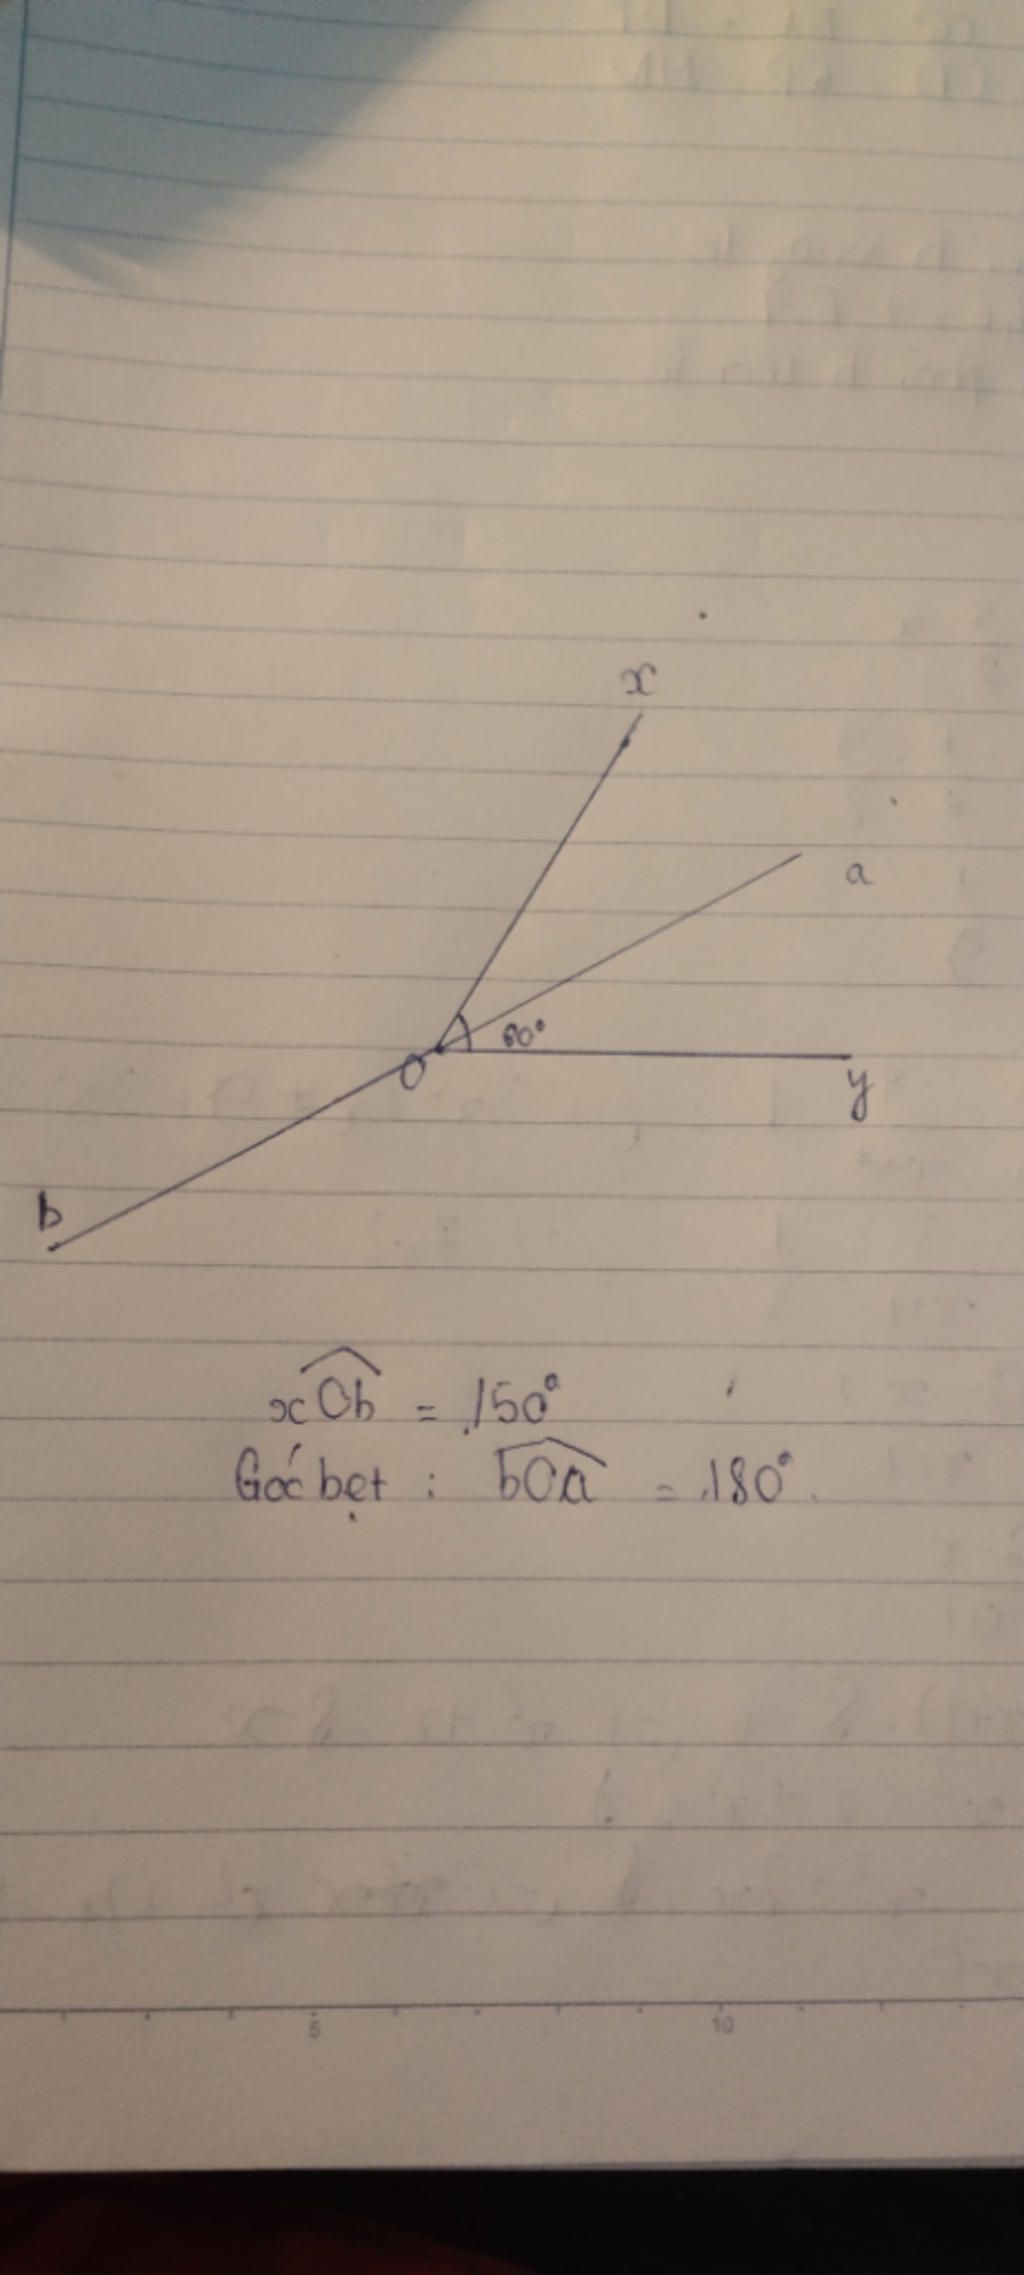 x
a
60°
O
y
b
xOb = 150°
Góc bẹt : bOa = 180°.
5 10